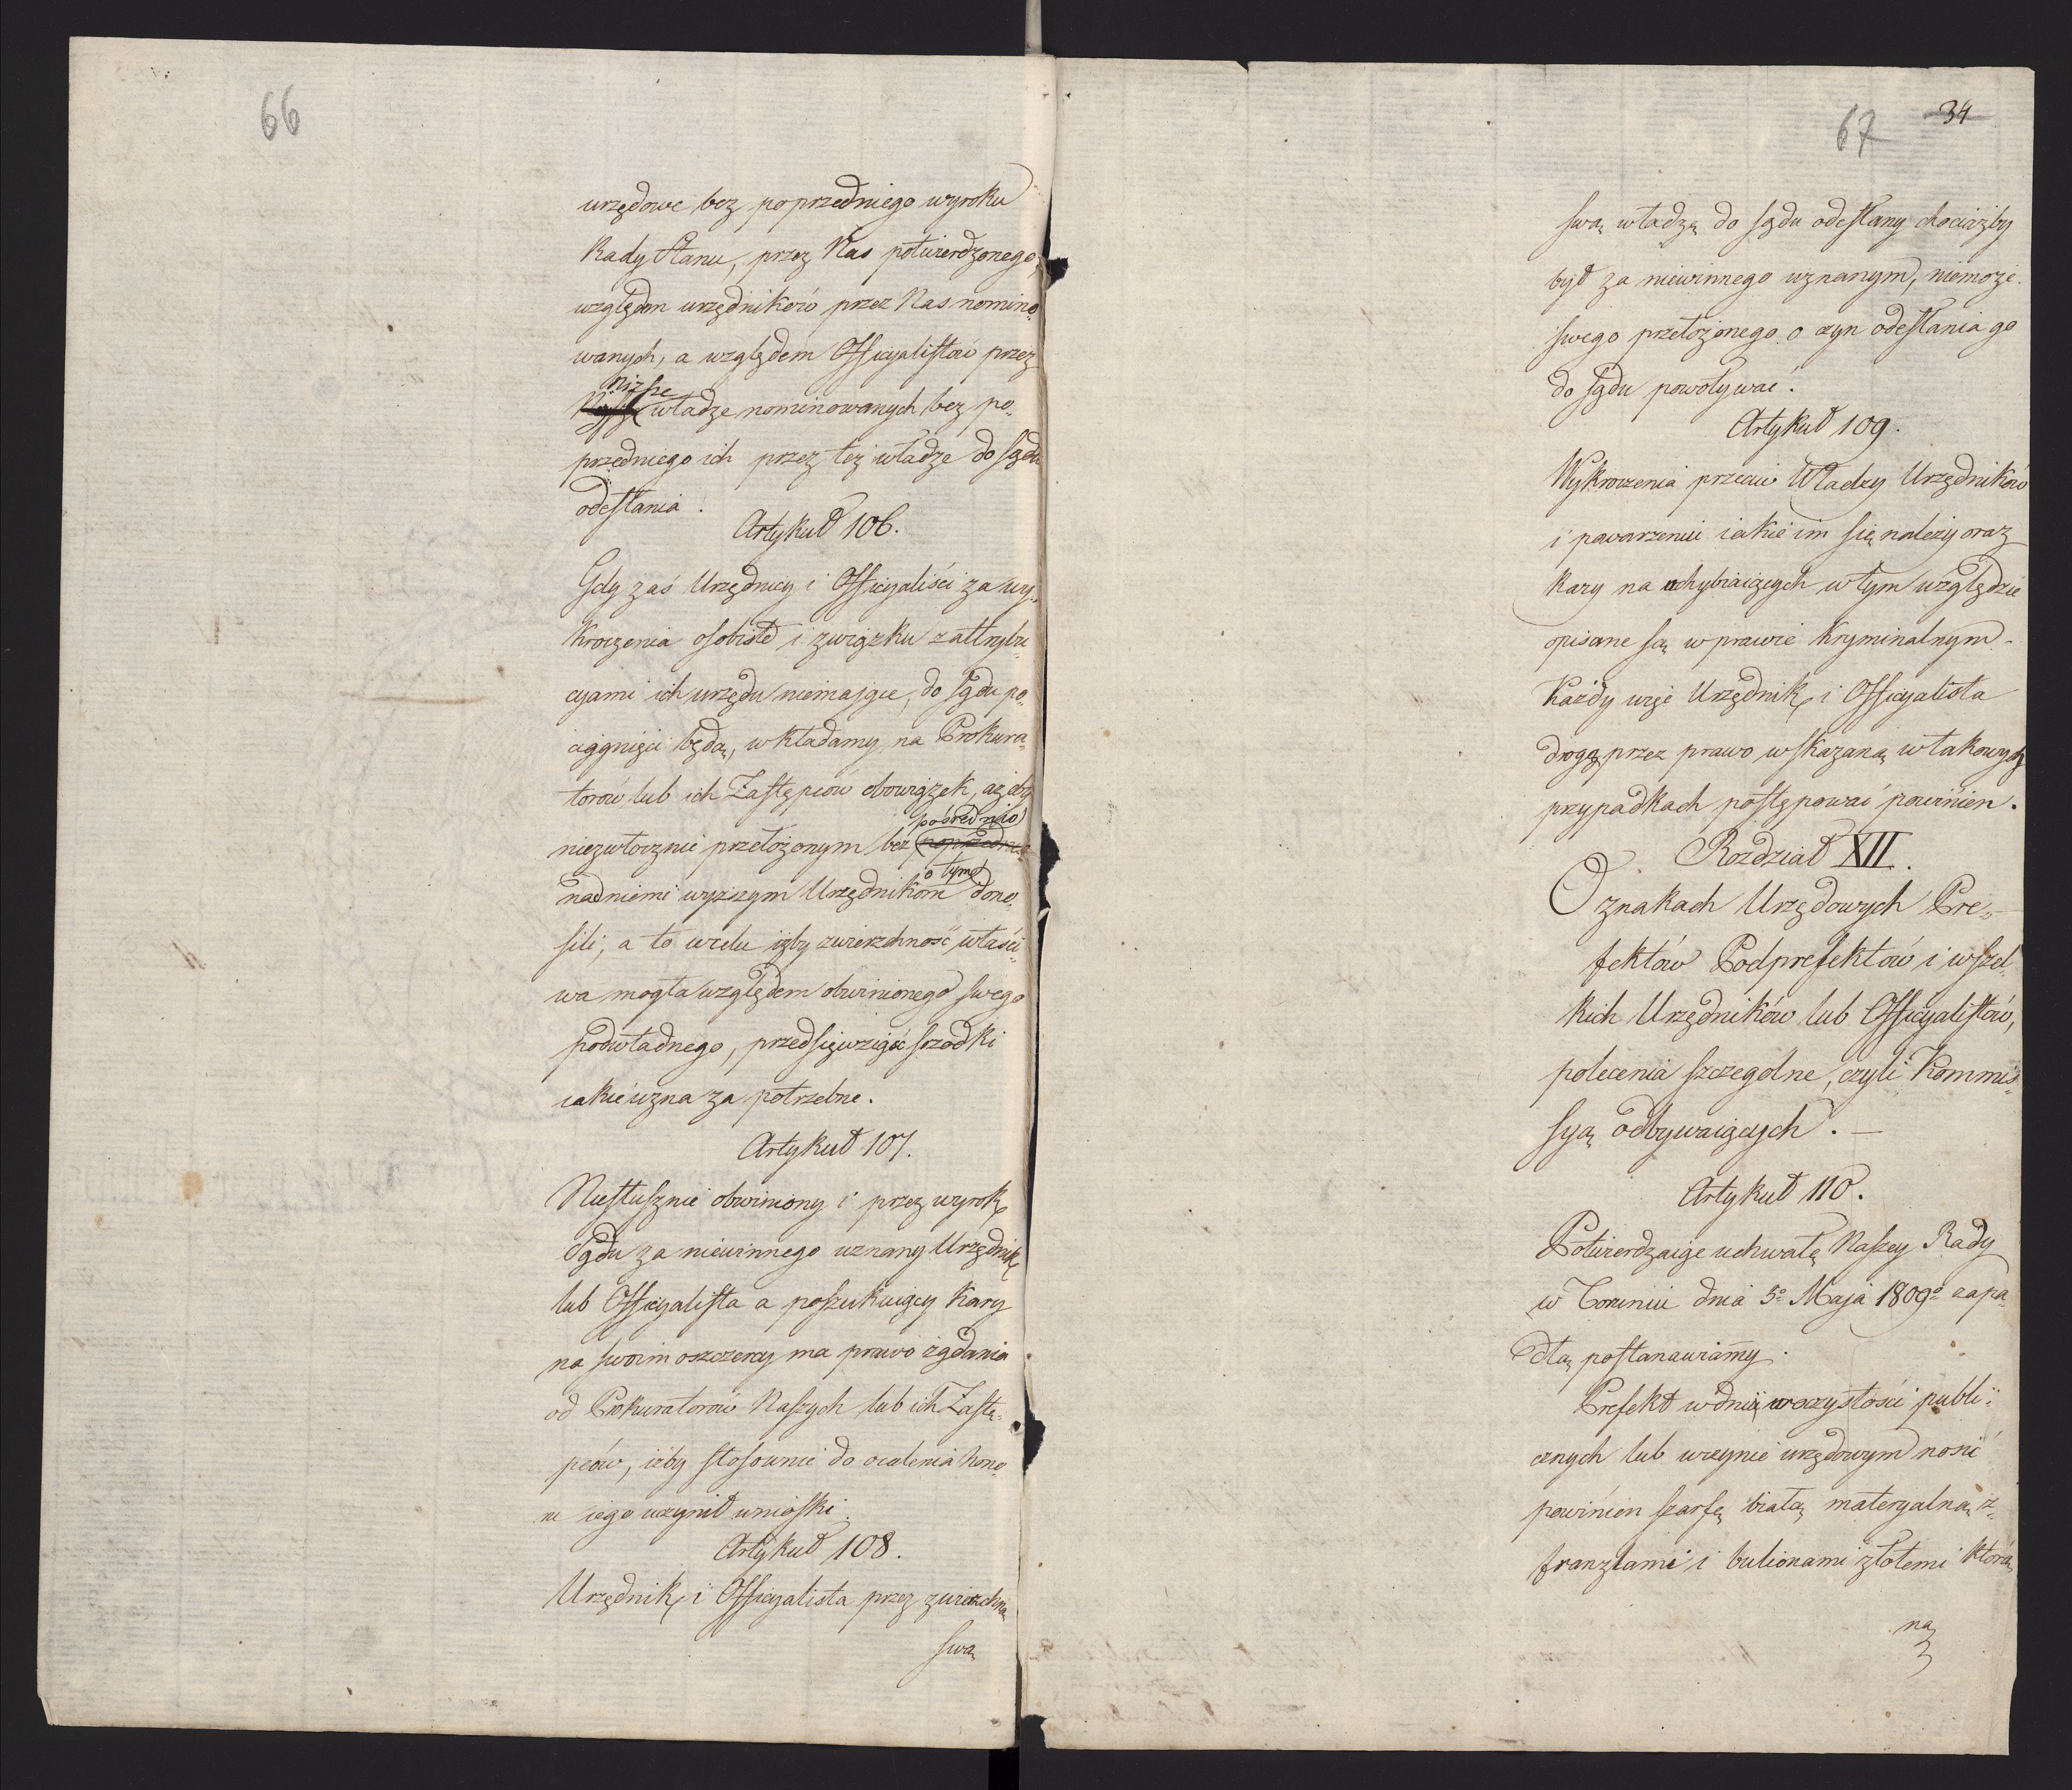 66
urzędowe bez poprzedniego wyroku
Rady Stanu, przez Nas potwierdzonego,
względem urzędników przez Nas nomino-
wanych, a względem Officyalistów przez
niższe
władze nominowanych bez po-
przedniego ich przez też władze do sądu
odesłania.
Artykuł 106.
Gdy zaś Urzędnicy i Officyaliści za wy-
kroczenia osobiste i związku z attrybu-
cyami ich urzędu niemające, do sądu po-
ciągnięci będą, wkładamy na Prokura-
torów lub ich Zastępców obowiązek, ażeby
pośrednio
niezwłocznie przełożonym bez poprzednio
o tym
nad niemi wyższym Urzędnikom dono-
sili, a to w celu iżby zwierzchność właści-
wa mogła względem obwinionego swego
podwładnego, przedsięwziąść srzodki
iakie uzna za potrzebne.
Artykuł 107.
Niesłusznie obwiniony i przez wyrok
Sądu za niewinnego uznany Urzędnik
lub Officyalista a poszukuiący kary
na swoim oszczercy ma prawo żądania
od Prokuratorów Naszych lub ich Zastę-
pców, iżby stosownie do ocalenia hono-
ru iego uczynił wnioski.
Artykuł 108.
Urzędnik i Officyalista przez zwierzchną
swą
67 34
swą władzę do sądu odesłany chociażby
był za niewinnego uznanym, niemoże
swego przełożonego o czyn odesłania go
do sądu powoływać.
Artykuł 109.
Wykroczenia przeciw Władzy Urzędników
i poważeniu iakie im się należy oraz
kary na uchybiaiących w tym względzie
opisane są w prawie Kryminalnym.
Każdy więc Urzędnik i Officyalista
drogą przez prawo wskazaną w takowych
przypadkach postępować powinien.
Rozdział XII.
O znakach Urzędowych Pre-
fektów Podprefektów i wszel-
kich Urzędników lub Officyalistów,
polecenia szczególne, czyli Kommis-
syą odbywaiących. —
Artykuł 110.
Potwierdzaiąc uchwałę Naszey Rady
w Toruniu dnia 5º Maja 1809º zapa-
dłą postanawiamy.
Prefekt w dnii uroczystości publi-
cznych lub w czynie urzędowym nosić
powinien szarfę białą materyalną z
franzlami i bulionami złotemi którą
na